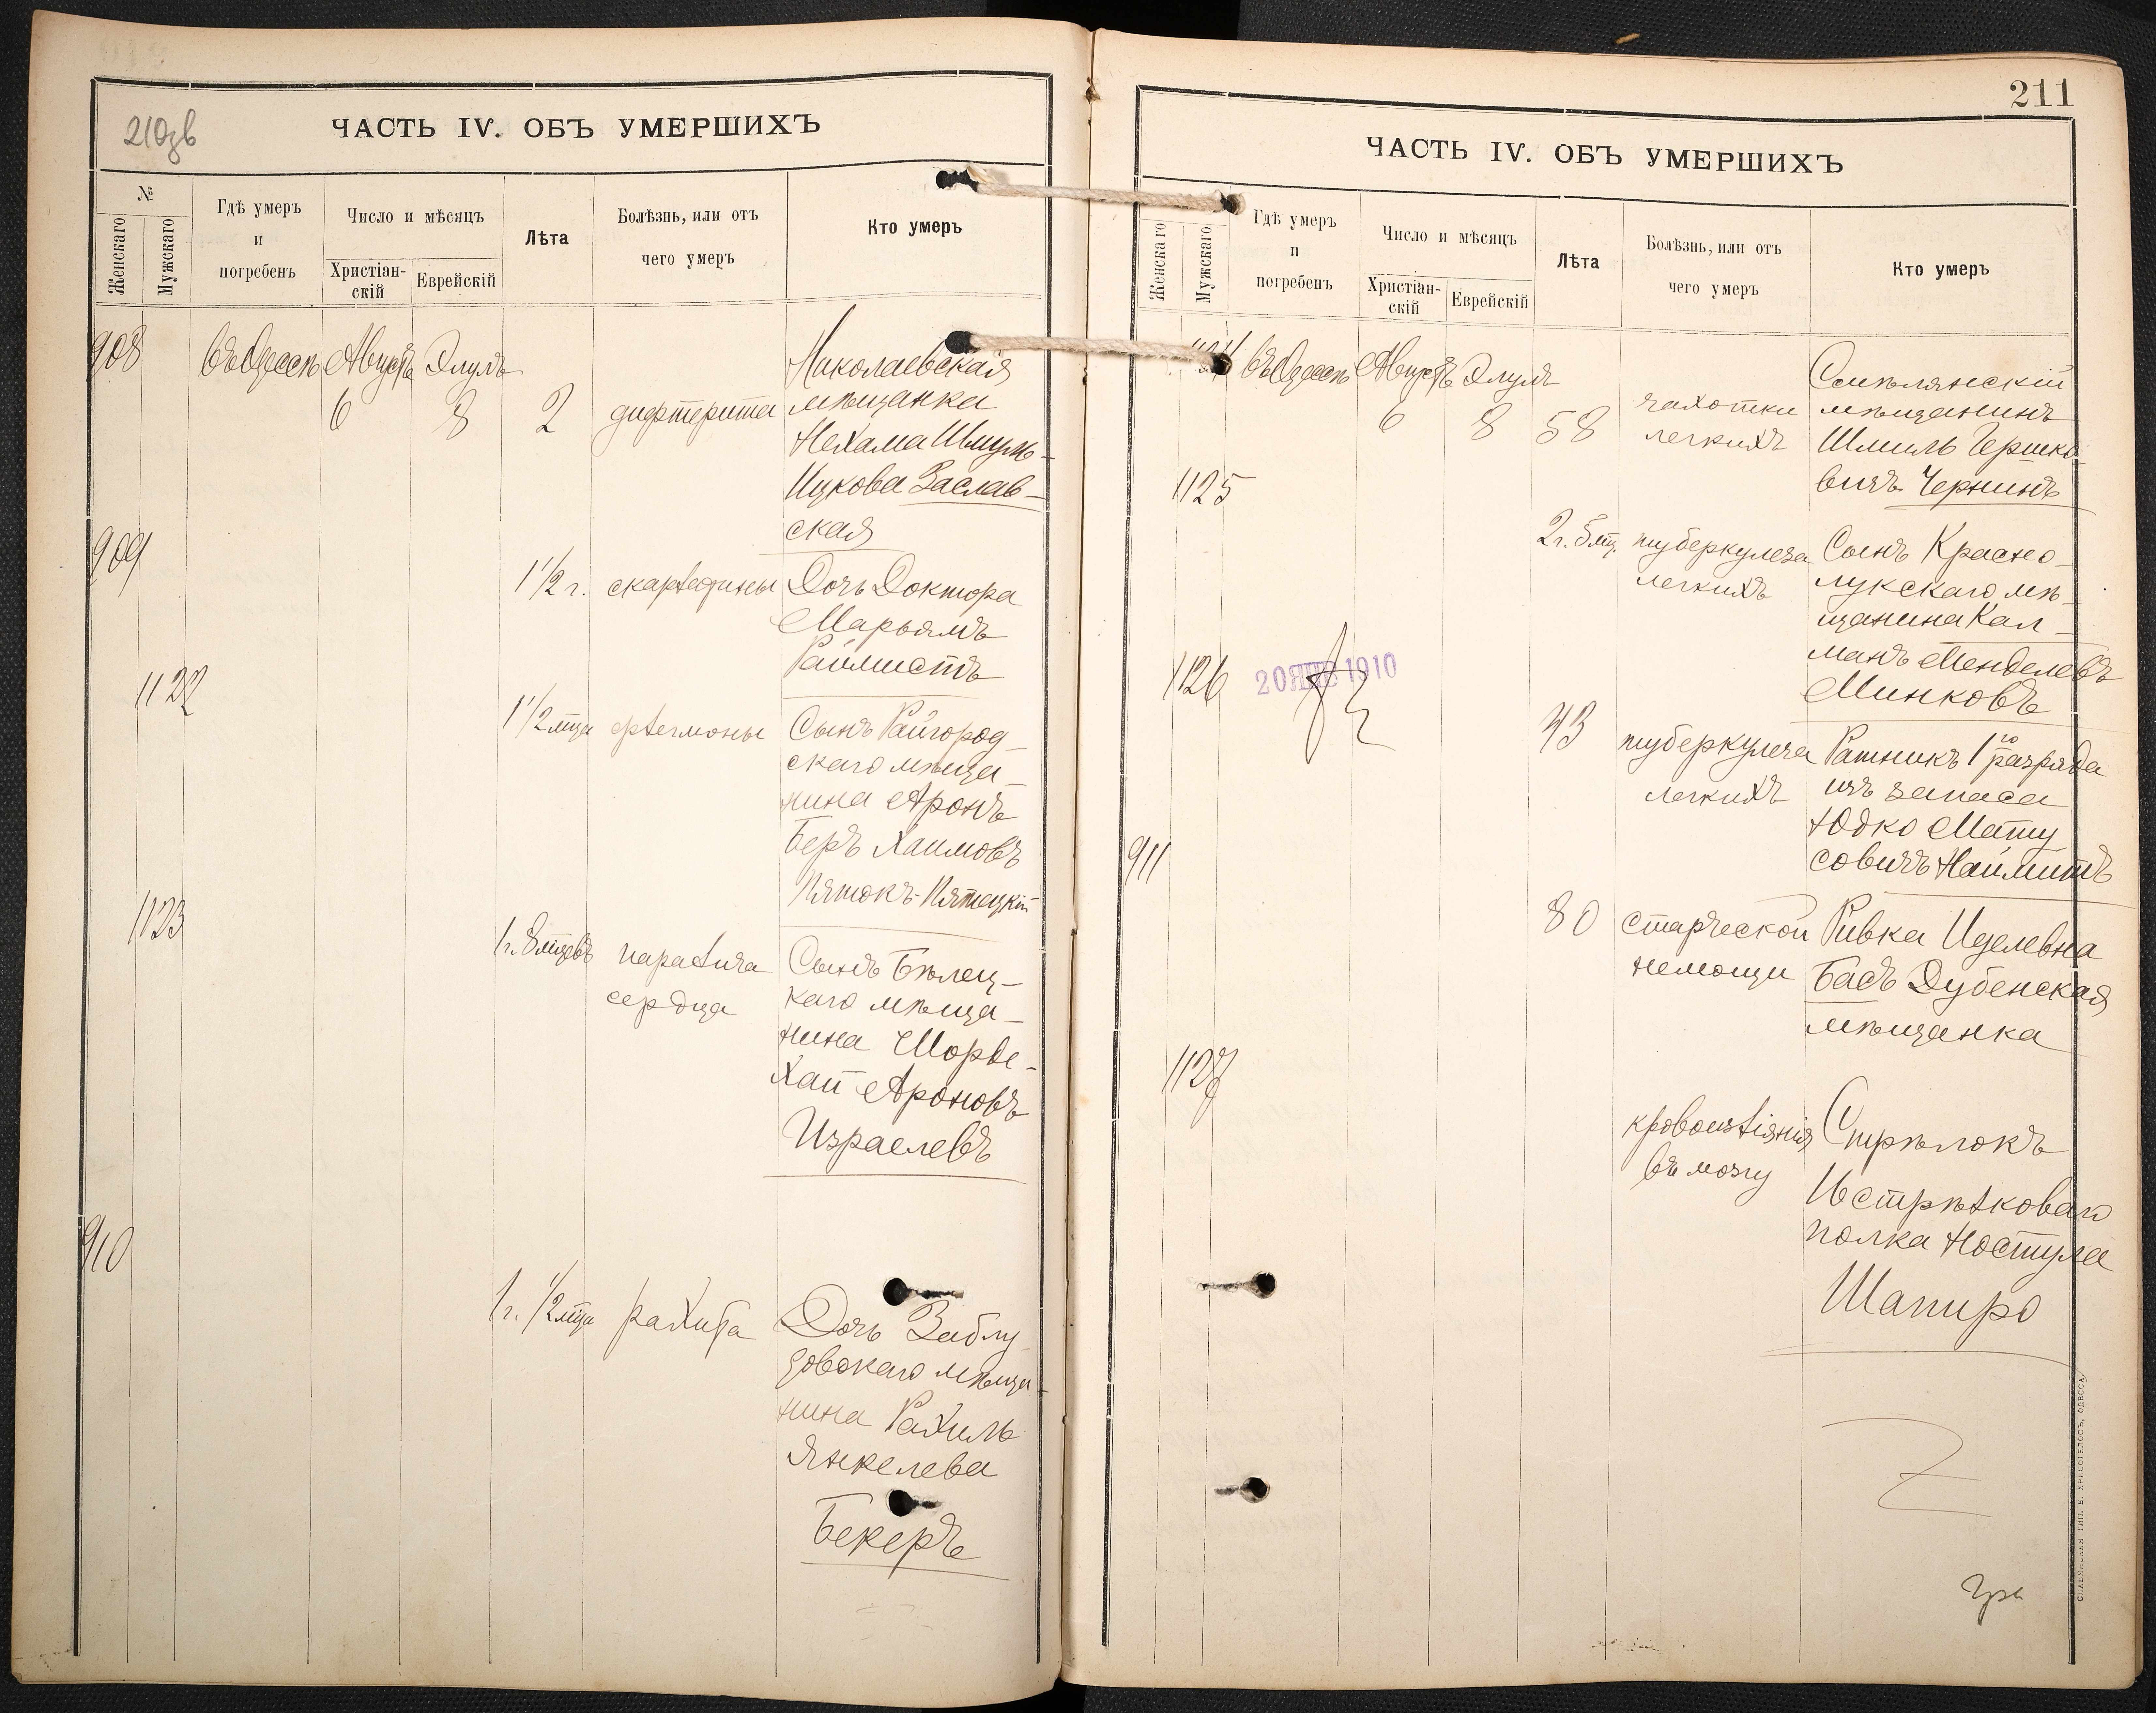 210зв
ЧАСТЬ IV. ОБЪ УМЕРШИХЪ
№
Женскаго
Мужскаго
Гдѣ умеръ
и
погребенъ
Число и мѣсяцъ
Христіан-
скій
Еврейскій
Лѣта
Болѣзнь, или отъ
чего умеръ
Кто умеръ
908 въ Одессѣ Августъ Элулъ
6 8 2 дифтерита
Николаевская
мѣщанка
Нехама Шмуль-
Ицкова Заслав-
ская
909
1 1/2 г. скарлатины
Дочь Доктора
Марьямъ
Раймистъ
1122
1 1/2 мца флегмоны
Сынъ Райгород-
скаго мѣща-
нина Аронъ
Беръ Хаимовъ
Пятокъ-Пятецкій
1123
1 г. 8 мцевъ паралича
сердца
Сынъ Бѣлец-
каго мѣща-
нина Шорде-
Хай Ароновъ
Израелевъ
910
1 г. 1/2 мца рахита
Дочь Заблу
довскаго мѣща-
нина Рахиль
Янкелева
Бекеръ
211
ЧАСТЬ IV. ОБЪ УМЕРШИХЪ
Женскаго
Мужскаго
Гдѣ умеръ
и
погребенъ
Число и мѣсяцъ
Христіан-
скій
Еврейскій
Лѣта
Болѣзнь, или отъ
чего умеръ
Кто умеръ
1124 въ Одессѣ Августъ Элулъ
6 8 58 чахотки
легкихъ
Смѣлянскій
мѣщанинъ
Шмиль Гершко-
вичъ Чернинъ
1125
2 г. 5 мц. туберкулеза
легкихъ
Сынъ Красно-
лукскаго мѣ-
щанина Кал-
манъ Менделевъ
Минковъ
1126 20 ЯНВ 1910
43 туберкулеза
легкихъ
Ратникъ 1го разряда
изъ запаса
Юдко Мату
совичъ Наймитъ
911
80 старческой
немощи
Ривка Иделевна
Басъ Дубенская
мѣщанка
1127
кровоизліянія
въ мозгу
Стрѣлокъ
стрѣлковаго
полка
Шапиро
СЛАВЯНСКАЯ ТИП. Е. ХРИСОГЕЛОСЪ, ОДЕССА.